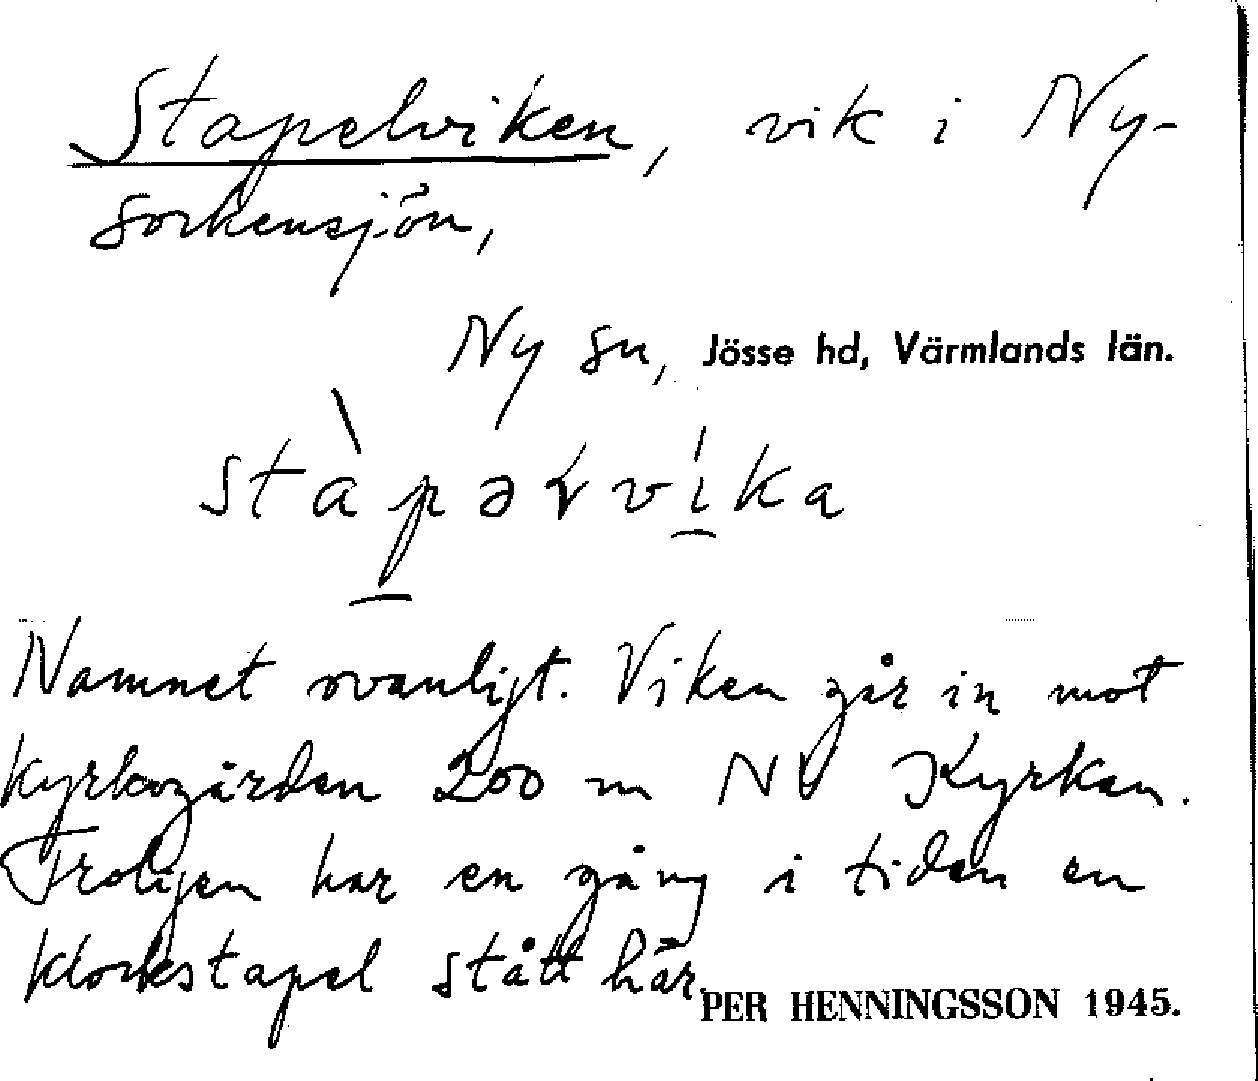 Stapelviken, vik i Ny-
sockensjön,
Ny sn, Jösse hd, Värmlands län.
Namnet ovanligt. Viken går in mot
kyrkogården 200 m NV Kyrkan.
Troligen har en gång i tiden en
klockstapel stått här.
PER HENNINGSSON 1945.